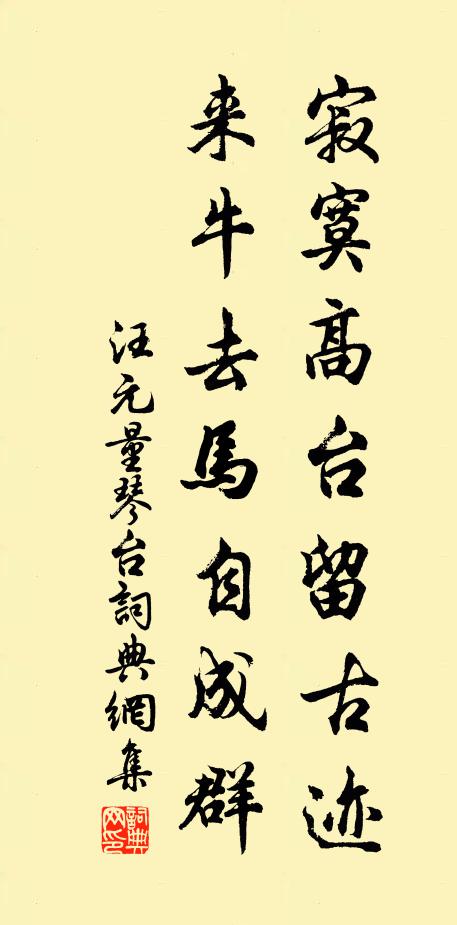 寂寞高台留古迹
来牛去馬自成群
汪元量琴台詞典網集
詞典网印